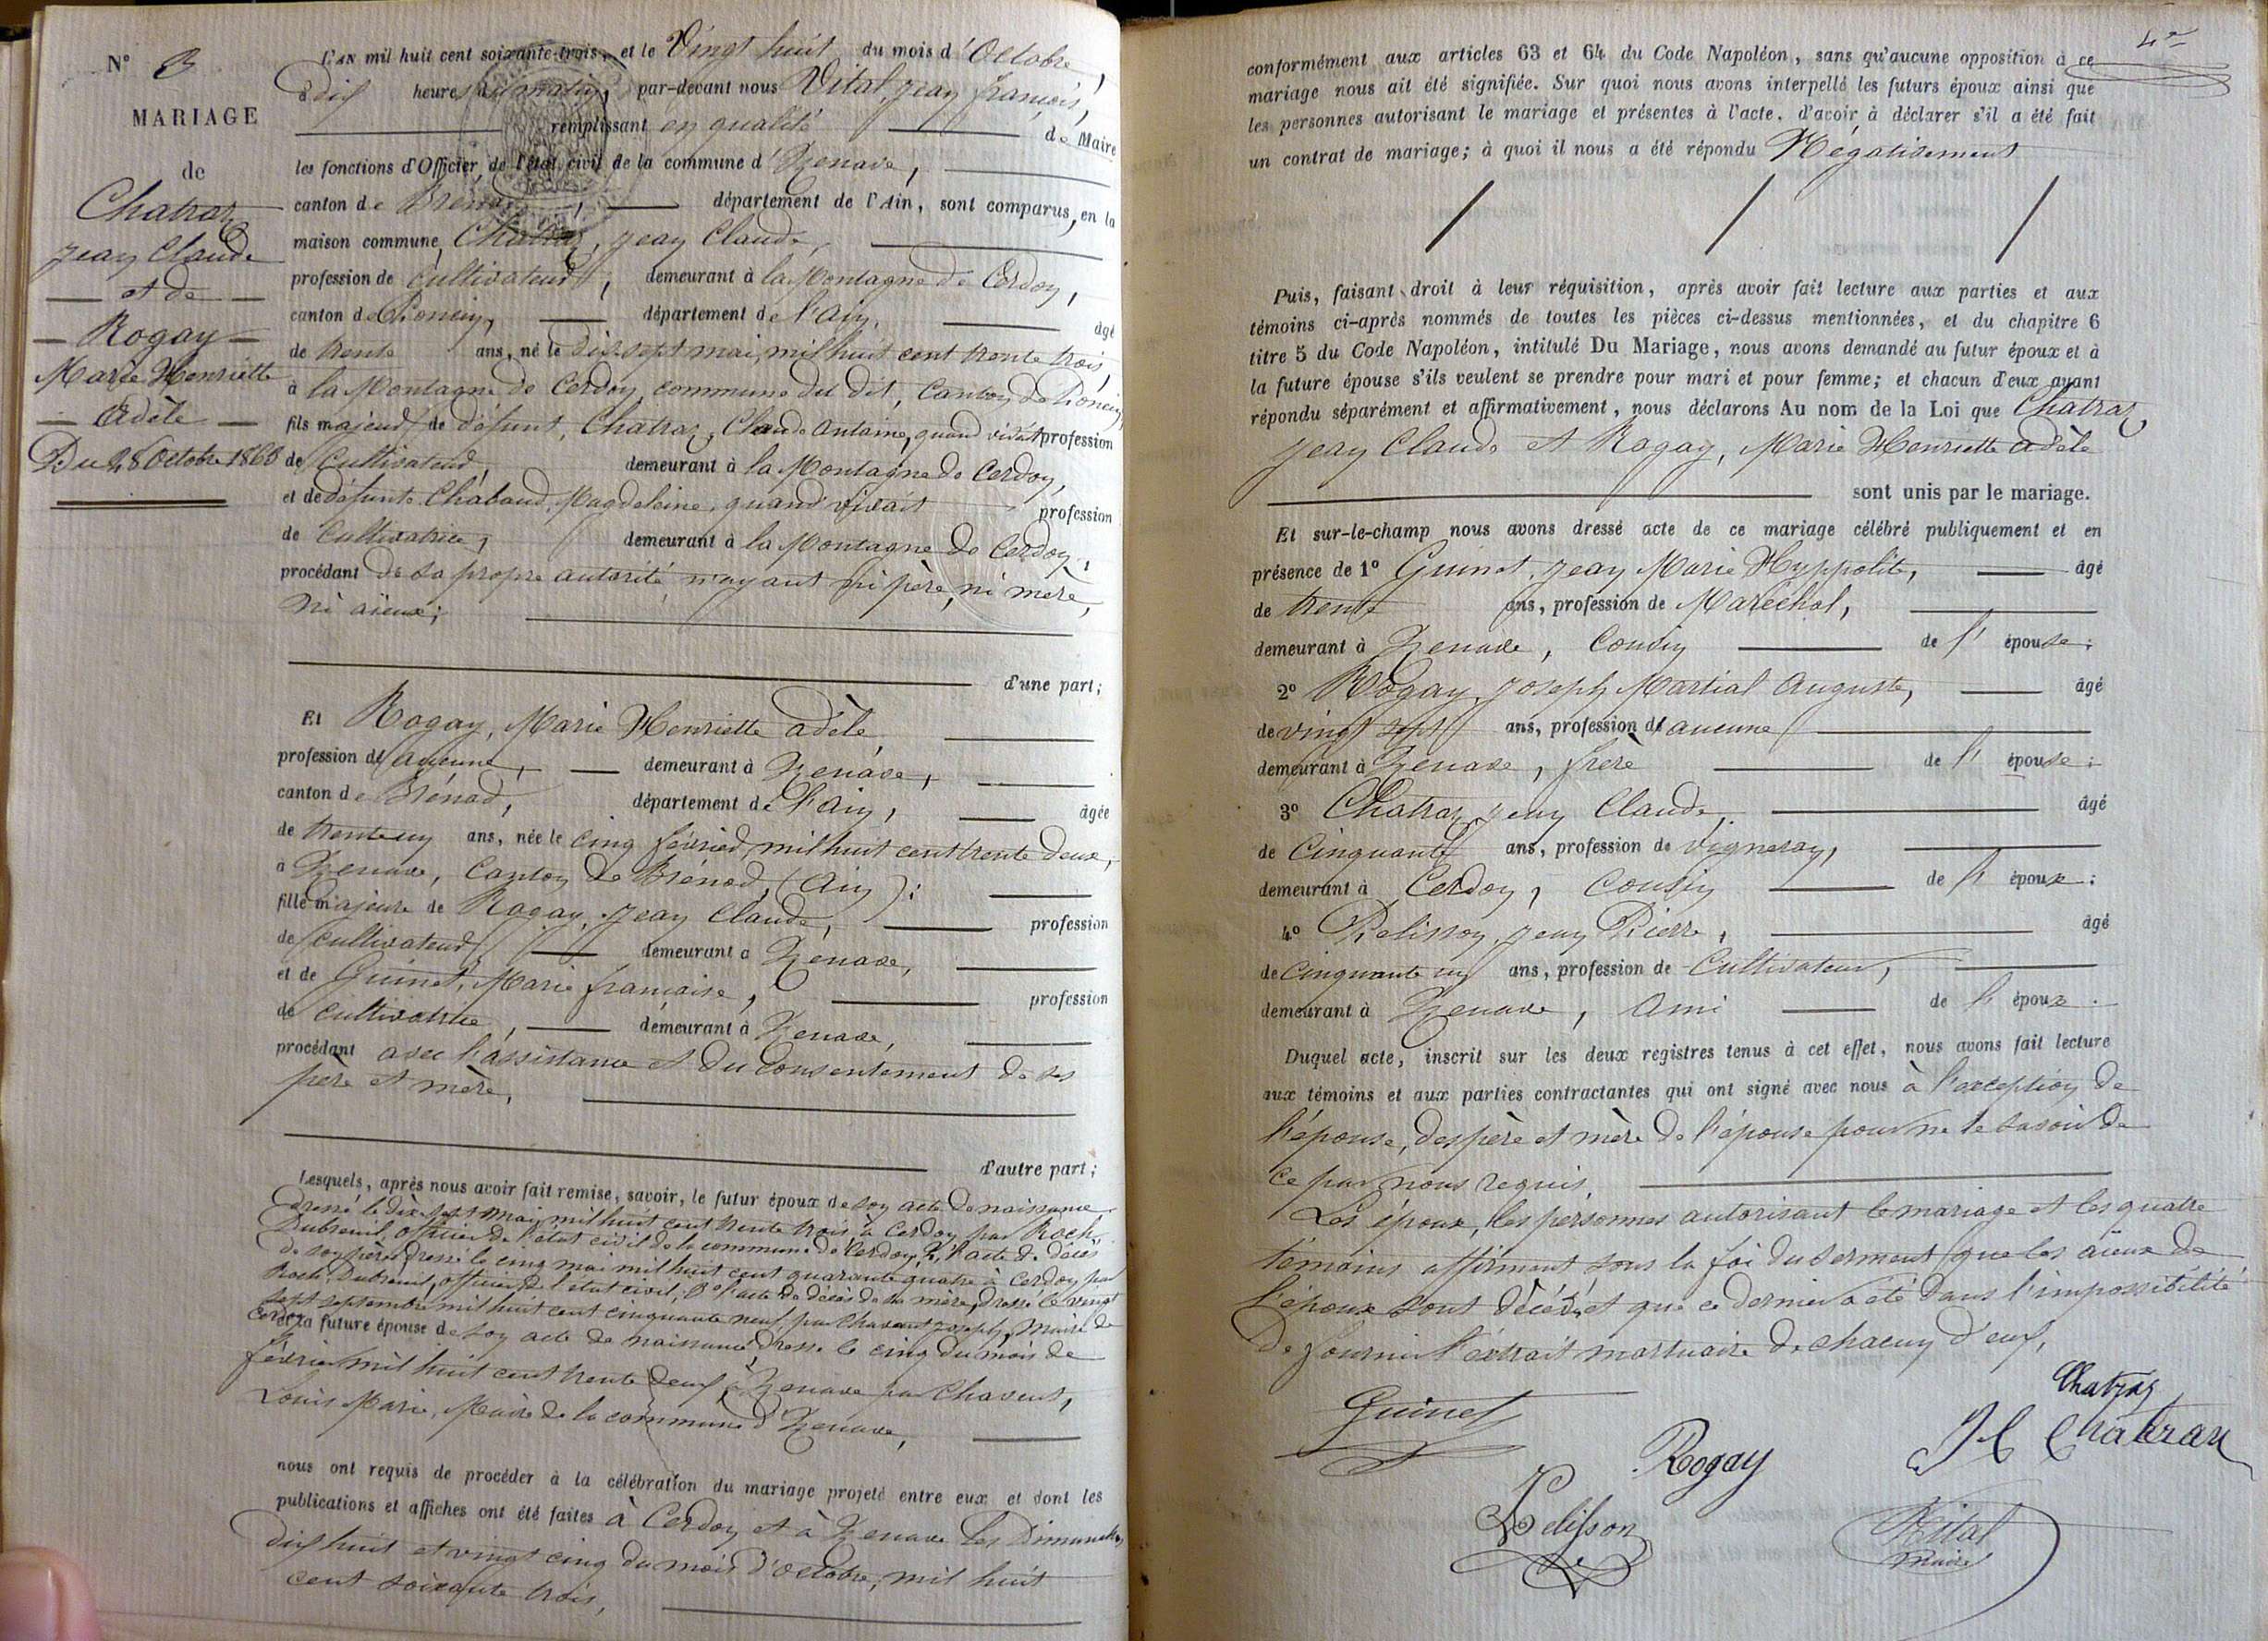 N° 3
MARIAGE
de
Chatraz
Jean Claude
et de
Rogay
Marie Henriette
Adèle
Du 28 Octobre 1863
L'AN mil huit cent soixante-trois, et le Vingt huit du mois d'Octobre,
à dix heures du matin, par-devant nous Vital, Jean françois,
remplissant en qualité de Maire
les fonctions d'Officier de l'état civil de la commune d'Izenave,
canton de Brénod, département de l'Ain, sont comparus, en la
maison commune, Chatraz, Jean Claude,
profession de cultivateur, demeurant à la Montagne de Cerdon,
canton de Poncin, département de l'Ain, âgé
de trente ans, né le dix sept mai, mil huit cent trente trois,
à la Montagne de Cerdon, commune du dit, Canton de Poncin,
fils majeur de défunt, Chatraz, Claude Antoine, quand vivait profession
de Cultivateur, demeurant à la Montagne de Cerdon,
et de défunte Chabaud, Magdeleine, quand vivait profession
de Cultivatrice, demeurant à la Montagne de Cerdon,
procédant de sa propre autorité, n'ayant ni père, ni mère,
ni aïeux;
d'une part;
Et Rogay, Marie Henriette adèle,
profession d'aucune, demeurant à Izenave,
canton de Brénod, département de l'Ain, âgée
de trente un ans, née le cinq février, mil huit cent trente deux,
à Izenave, Canton de Brénod, (Ain);
fille majeure de Rogay, Jean Claude, profession
de cultivateur demeurant à Izenave,
et de Guinet, Marie françoise, profession
de cultivatrice, demeurant à Izenave,
procédant avec l'assistance et du consentement de ses
père et mère,
d'autre part;
Lesquels, après nous avoir fait remise, savoir, le futur époux de son acte de naissance
dressé le dix sept mai mil huit cent trente trois, à Cerdon par Roch,
Dubreuil, officier de l'état civil de la commune de Cerdon, 2° l'acte de décès
de son père dressé le cinq mai mil huit cent quarante quatre à Cerdon par
Roch Dubreuil, officier de l'état civil; 3° l'acte de décès de sa mère, dressé le vingt
sept septembre mil huit cent cinquante neuf, par Chavent Joseph, Maire de
Cerdon
et la future épouse de son acte de naissance, dressé le cinq du mois de
février mil huit cent trente deux, à Izenave par Chavent,
Louis Marie, Maire de la commune d'Izenave,
nous ont requis de procéder à la célébration du mariage projeté entre eux et dont les
publications et affiches ont été faites à Cerdon et à Izenave les Dimanches
dix huit et vingt cinq du mois d'octobre, mil huit
cent soixante trois,
conformément aux articles 63 et 64 du Code Napoléon, sans qu'aucune opposition à ce
mariage nous ait été signifiée. Sur quoi nous avons interpellé les futurs époux ainsi que
les personnes autorisant le mariage et présentes à l'acte, d'avoir à déclarer s'il a été fait
un contrat de mariage; à quoi il nous a été répondu Négativement
Puis, faisant droit à leur réquisition, après avoir fait lecture aux parties et aux
témoins ci-après nommés de toutes les pièces ci-dessus mentionnées, et du chapitre 6
titre 5 du Code Napoléon, intitulé Du Mariage, nous avons demandé au futur époux et à
la future épouse s'ils veulent se prendre pour mari et pour femme; et chacun d'eux ayant
répondu séparément et affirmativement, nous déclarons Au nom de la Loi que Chatraz,
Jean Claude et Rogay, Marie Henriette adèle
sont unis par le mariage.
Et sur-le-champ nous avons dressé acte de ce mariage célébré publiquement et en
présence de 1° Guinet, Jean Marie Hyppolite, âgé
de trente ans, profession de Maréchal,
demeurant à Izenave, Cousin de l'épouse;
2° Rogay, Joseph Martial Auguste, âgé
de vingt sept ans, profession d'aucune
demeurant à Izenave, frère de l'épouse;
3° Chatraz, Jean Claude, âgé
de Cinquante ans, profession de Vigneron,
demeurant à Cerdon, Cousin de l'époux;
4° Pelisson, Jean Pierre, âgé
de Cinquante un ans, profession de Cultivateur,
demeurant à Izenave, Ami de l'époux.
Duquel acte, inscrit sur les deux registres tenus à cet effet, nous avons fait lecture
aux témoins et aux parties contractantes qui ont signé avec nous à l'exception de
l'épouse, des père et mère de l'épouse pour ne le savoir de
ce par nous requis.
Les époux, les personnes autorisant le mariage et les quatre
témoins affirment sous la foi du serment que les aïeux de
l'époux sont décédés et que ce dernier a été dans l'impossibilité
de fournir l'extrait mortuaire de chacun d'eux,
Guinet
Chatraz
Rogay
J C Chatraz
Pelisson
Vital
Maire